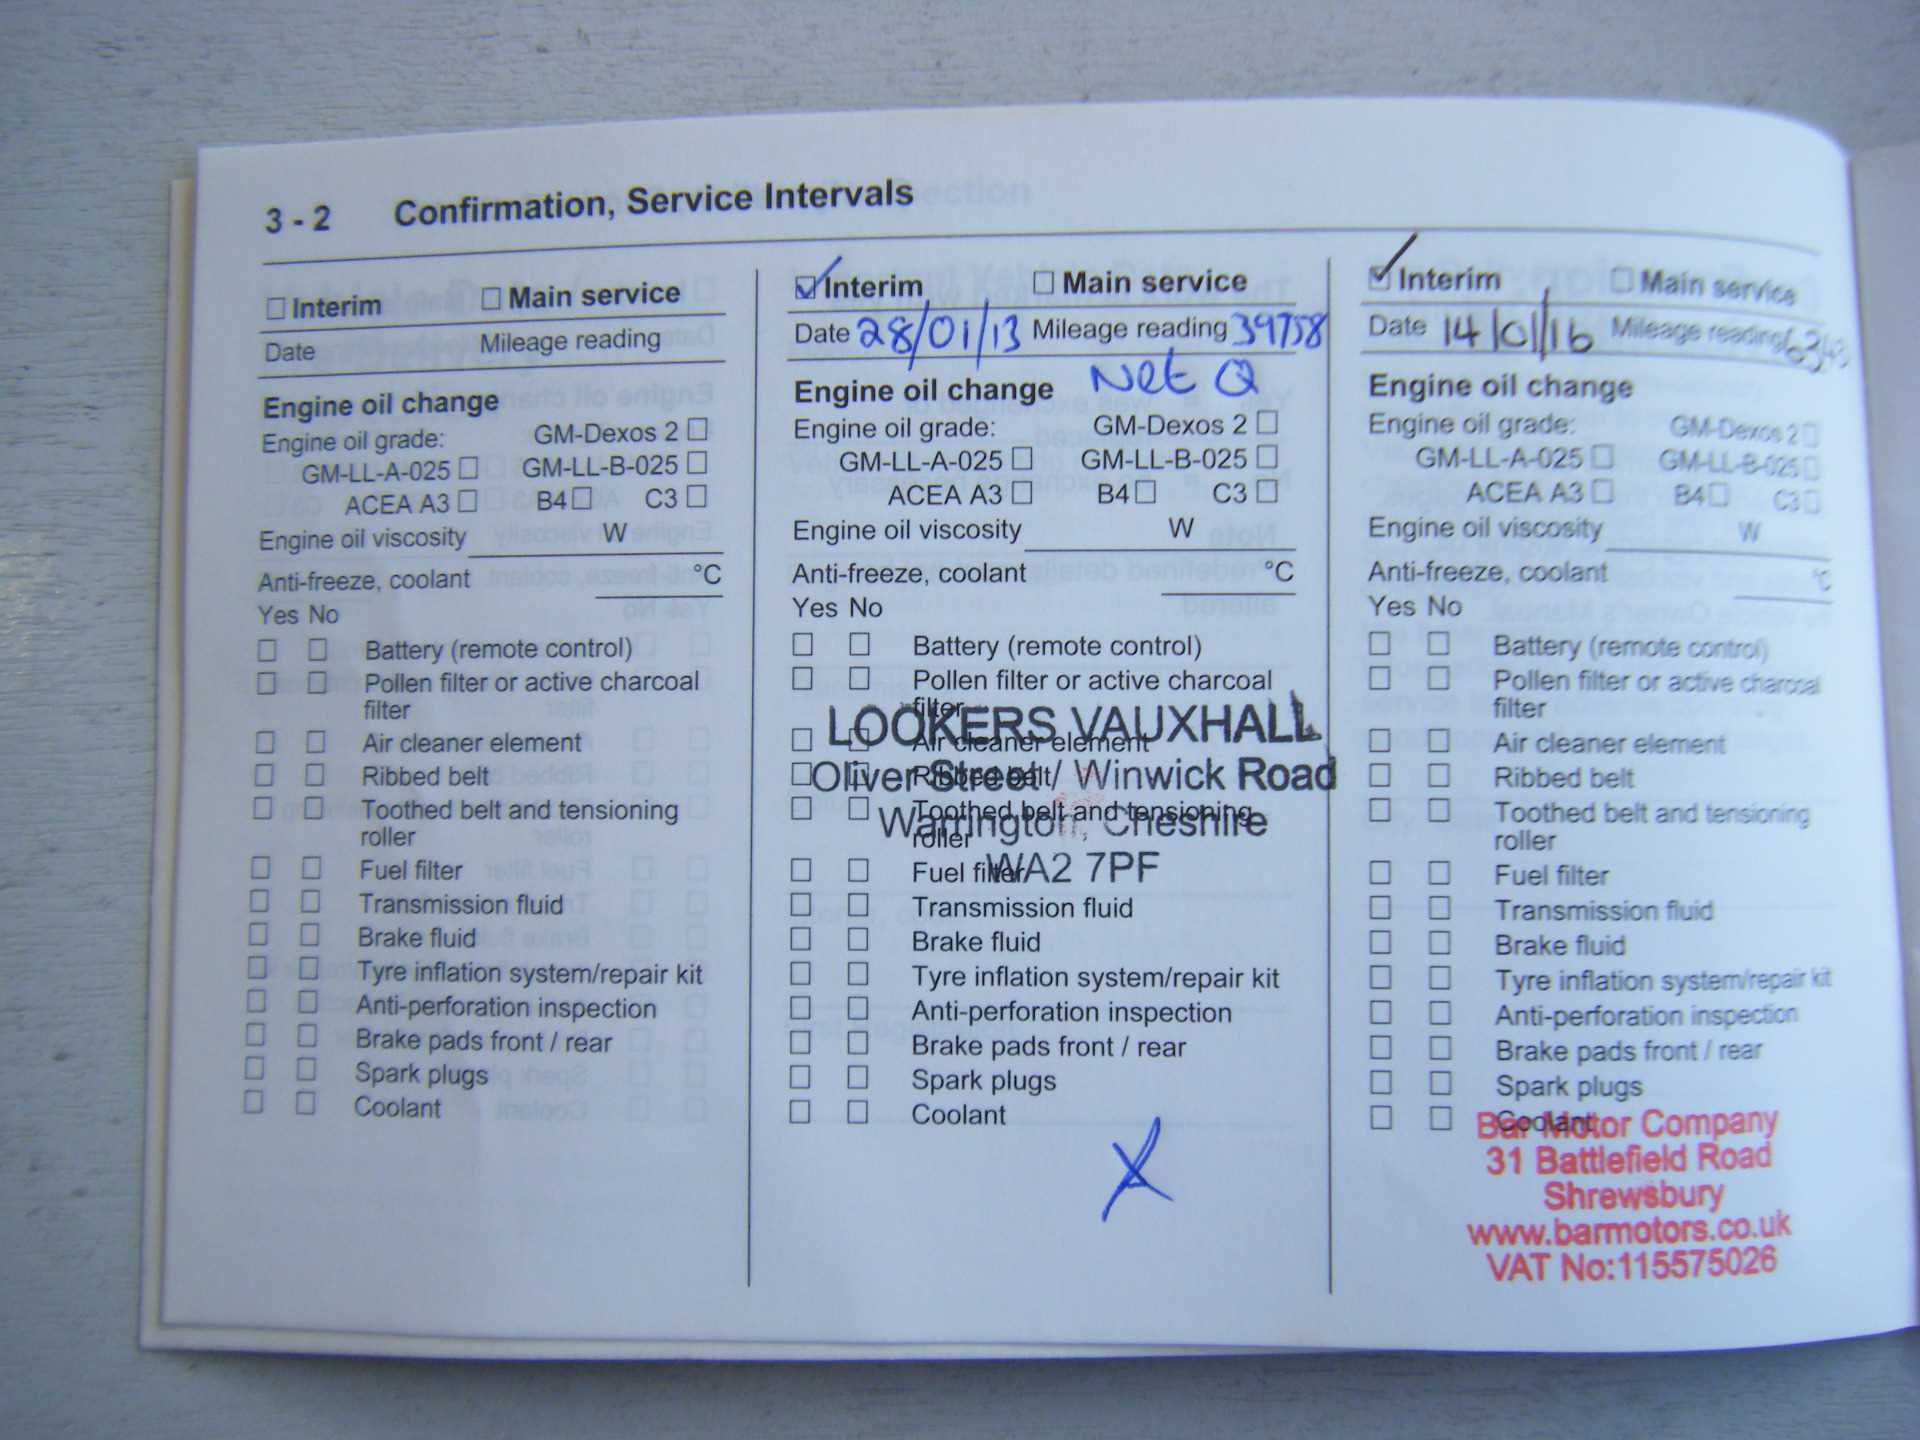 3 - 2 Confirmation, Service Intervals
Interim Main service
Date Mileage reading
Engine oil change
Engine oil grade: GM-Dexos 2
GM-LL-A-025 GM-LL-B-025
ACEA A3 B4 C3
Engine oil viscosity W
Anti-freeze, coolant °C
Yes No
Battery (remote control)
Pollen filter or active charcoal
filter
Air cleaner element
Ribbed belt
Toothed belt and tensioning
roller
Fuel filter
Transmission fluid
Brake fluid
Tyre inflation system/repair kit
Anti-perforation inspection
Brake pads front / rear
Spark plugs
Coolant
Interim Main service
Date 28/01/13 Mileage reading 39758
Engine oil change Net Q
Engine oil grade: GM-Dexos 2
GM-LL-A-025 GM-LL-B-025
ACEA A3 B4 C3
Engine oil viscosity W
Anti-freeze, coolant °C
Yes No
Battery (remote control)
Pollen filter or active charcoal
filter
LOOKERS VAUXHALL
Air cleaner element
Oliver Street / Winwick Road
Ribbed belt
Toothed belt and tensioning
Warrington, Cheshire
roller
WA2 7PF
Fuel filter
Transmission fluid
Brake fluid
Tyre inflation system/repair kit
Anti-perforation inspection
Brake pads front / rear
Spark plugs
Coolant
Interim Main service
Date 14/01/16 Mileage reading
Engine oil change
Engine oil grade: GM-Dexos 2
GM-LL-A-025 GM-LL-B-025
ACEA A3 B4 C3
Engine oil viscosity W
Anti-freeze, coolant °C
Yes No
Battery (remote control)
Pollen filter or active charcoal
filter
Air cleaner element
Ribbed belt
Toothed belt and tensioning
roller
Fuel filter
Transmission fluid
Brake fluid
Tyre inflation system/repair kit
Anti-perforation inspection
Brake pads front / rear
Spark plugs
Coolant
Bar Motor Company
31 Battlefield Road
Shrewsbury
www.barmotors.co.uk
VAT No:115575026